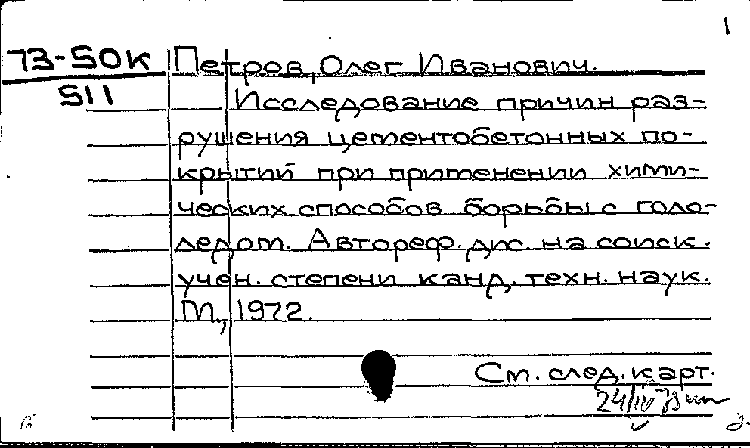 1
73-50к Петров, Олег Иванович.
511 Исследование причин раз-
рушения цементобетонных по-
крытий при применении хими-
ческих способов борьбы с голо-
ледом. Автореф. дис. на соиск.
учен. степени канд. техн. наук.
М., 1972.
См. след. карт.